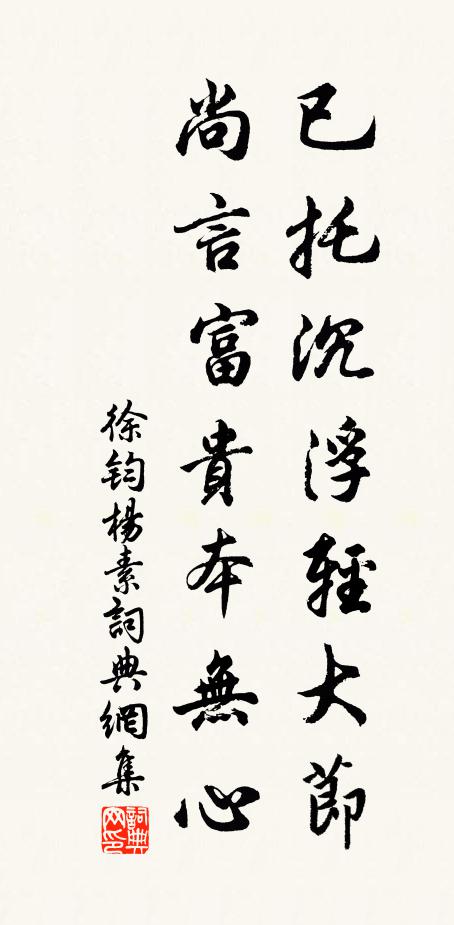 已托沉浮輕大節
尚言富貴本無心
徐鈞楊素詞典網集
詞典网印